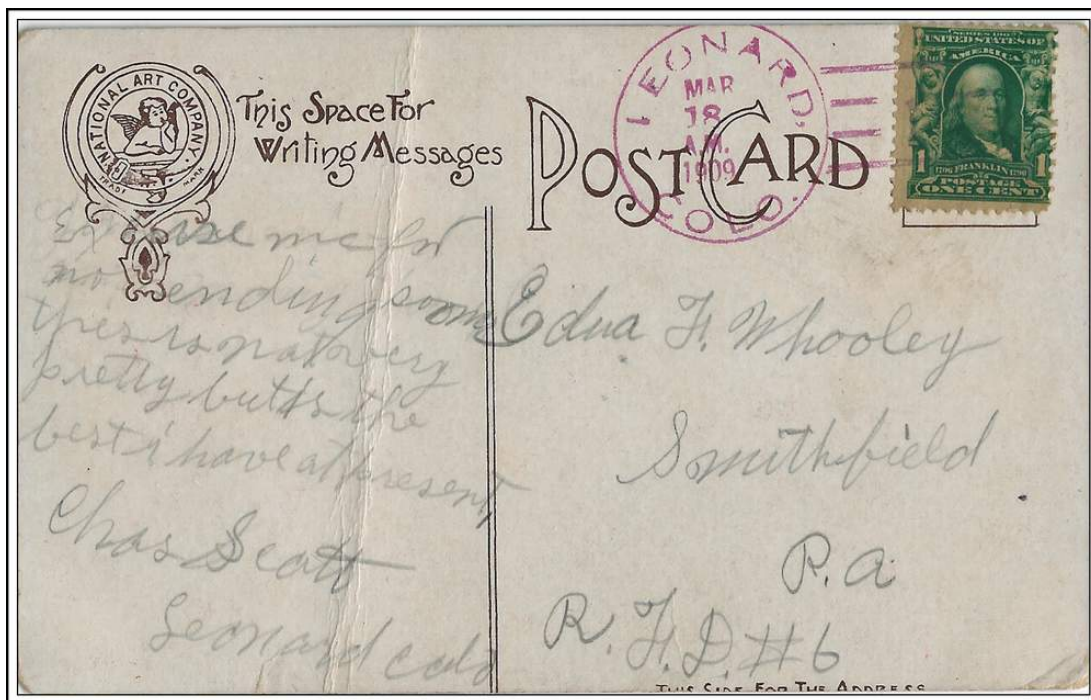 NATIONAL ART COMPANY.
TRADE MARK
This Space For
Writing Messages
POST CARD
LEONARD,
MAR
18
A.M.
1909
COLO.
SERIES 1902
UNITED STATES OF
AMERICA
1 1706 FRANKLIN 1790 1
POSTAGE
ONE CENT
Excuse me for
not sending soon
this is not very
pretty but is the
best i have at present,
Chas Scott
Leonard colo
Edna F. Whooley
Smithfield
P.a
R.F.D. #6
THIS SIDE FOR THE ADDRESS